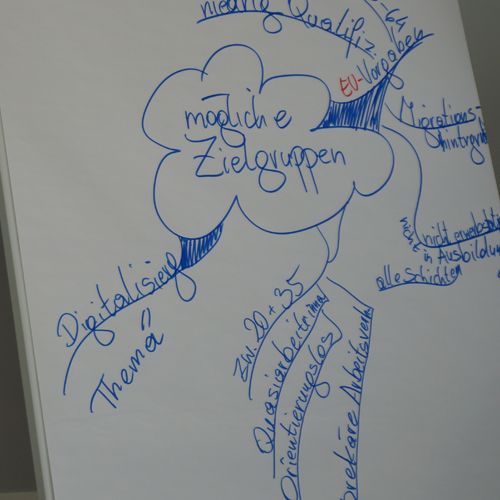 niedrig Qualifiz.
-64
EU-Vorgaben
mögliche
Zielgruppen
Migrations-
hintergrund
nicht
in Ausbildung
alle Schichten
Digitalisierg
Thema
zw. 20 + 35
Orientierungslos
prekäre Arbeitsverh